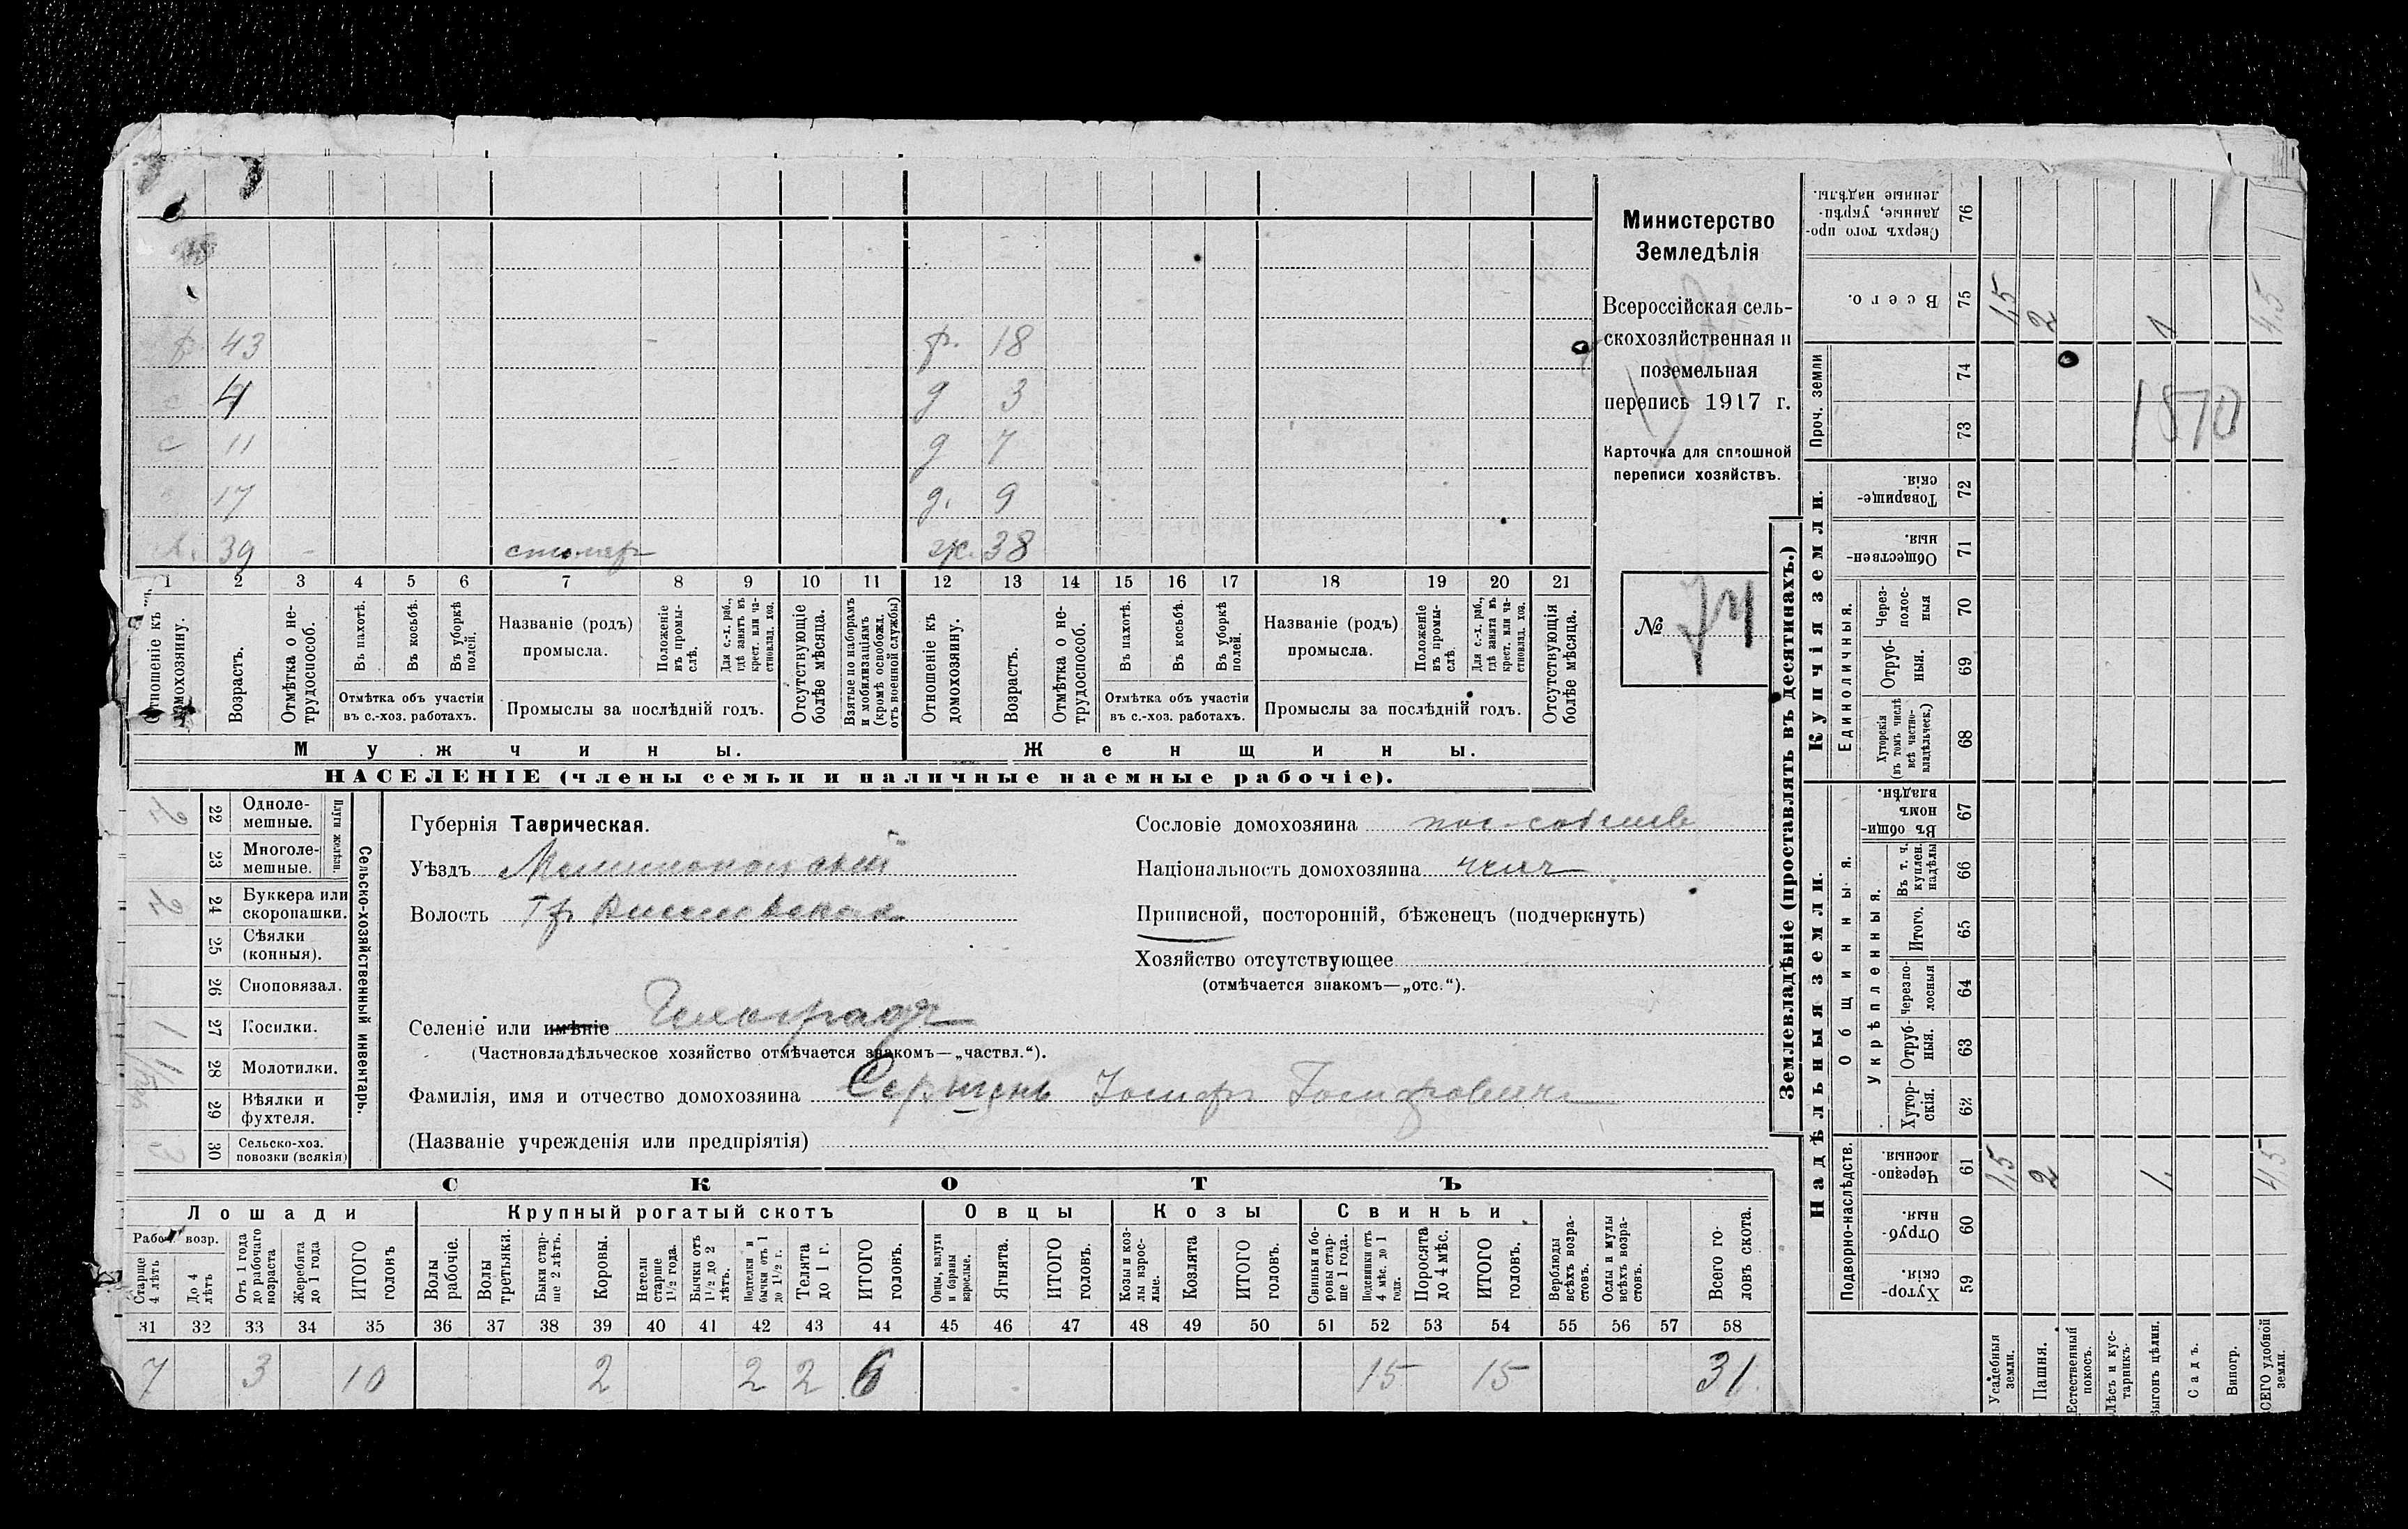 Министерство
Земледѣлія
Всероссійская сель-
скохозяйственная и
поземельная
перепись 1917 г.
Карточка для сплошной
переписи хозяйствъ.
№
ф. 43 ф. 18
4 д 3
с 11 д 7
17 д. 9
х. 39 – столяр ж. 38
1 2 3 4 5 6 7 8 9 10 11 12 13 14 15 16 17 18 19 20 21
Отношеніе къ домохозяину.
Возрастъ.
Отмѣтка о не-трудоспособ.
Въ пахотѣ.
Въ косьбѣ.
Въ уборкѣ полей.
Отмѣтка объ участіи въ с.-хоз. работахъ.
Названіе (родъ) промысла.
Положеніе въ промы-слѣ.
Для с.-х. раб., гдѣ занятъ въ крест. или ча-стновлад. хоз.
Промыслы за послѣдній годъ.
Отсутствующіе болѣе мѣсяца.
Взятые по наборамъ и мобилизаціямъ (кромѣ освобожд. отъ военной службы)
Отношеніе къ домохозяину.
Возрастъ.
Отмѣтка о не-трудоспособ.
Въ пахотѣ.
Въ косьбѣ.
Въ уборкѣ полей.
Отмѣтка объ участіи въ с.-хоз. работахъ.
Названіе (родъ) промысла.
Положеніе въ промы-слѣ.
Для с.-х. раб., гдѣ занята въ крест. или ча-стновлад. хоз.
Промыслы за послѣдній годъ.
Отсутствующія болѣе мѣсяца.
Мужчины. Женщины.
НАСЕЛЕНІЕ (члены семьи и наличные наемные рабочіе).
Сельско-хозяйственный инвентарь.
Плуги желѣзн.
22 Одноле-мешные.
23 Многоле-мешные.
24 Буккера или скоропашки.
25 Сѣялки (конныя).
26 Сноповязал.
27 Косилки. 1
28 Молотилки.
29 Вѣялки и фухтеля.
30 Сельско-хоз. повозки (всякія) 3
Губернія Таврическая.
Уѣздъ Мелитопольскій
Волость
Селеніе или имѣніе
(Частновладѣльческое хозяйство отмѣчается знакомъ—„частвл.“).
Фамилія, имя и отчество домохозяина Іосифъ Іосифовичъ
(Названіе учрежденія или предпріятія)
Сословіе домохозяина пос. собств
Національность домохозяина нем
Приписной, посторонній, бѣженецъ (подчеркнуть)
Хозяйство отсутствующее
(отмѣчается знакомъ—„отс.“).
СКОТЪ
Лошади Крупный рогатый скотъ Овцы Козы Свиньи
Рабоч. возр.
Старше 4 лѣтъ
До 4 лѣтъ
Отъ 1 года до рабочаго возраста
Жеребята до 1 года
ИТОГО головъ
Волы рабочіе.
Волы третьяки.
Быки стар-ше 2 лѣтъ.
Коровы.
Нетели старше 1½ года.
Бычки отъ 1½ до 2 лѣтъ.
Подтелки и бычки отъ 1 до 1½ г.
Телята до 1 г.
ИТОГО головъ.
Овцы, валухи и бараны взрослые.
Ягнята.
ИТОГО головъ.
Козы и коз-лы взрос-лые.
Козлята
ИТОГО головъ.
Свиньи и бо-ровы стар-ше 1 года.
Подсвинки отъ 4 мѣс. до 1 года.
Поросята до 4 мѣс.
ИТОГО головъ.
Верблюды всѣхъ возра-стовъ.
Ослы и мулы всѣхъ возра-стовъ.
Всего го-ловъ скота.
31 32 33 34 35 36 37 38 39 40 41 42 43 44 45 46 47 48 49 50 51 52 53 54 55 56 57 58
7 3 10 2 2 2 6 15 15 31
Землевладѣніе (проставлять въ десятинахъ.)
Купчія земли.
Надѣльныя земли.
Сверхъ того про-данные, укрѣп-ленные надѣлы. 76
Всего. 75 1,5 2 1 4,5
Проч. земли 74 73
1870
Товарище-скія. 72
Обществен-ныя. 71
Единоличныя.
Через-полос-ныя 70
Отруб-ныя. 69
Хуторскія (въ томъ числѣ всѣ частно-владѣльческ.) 68
Общинныя.
Въ общи-номъ владѣн. 67
Укрѣпленныя.
Въ т. ч. куплен. надѣлы 66
Итого. 65
Черезпо-лосныя 64
Отруб-ныя. 63
Хутор-скія. 62
Подворно-наслѣдств.
Черезпо-лосныя. 61 1,5 2 1 4,5
Отруб-ныя. 60
Хутор-скія. 59
Усадебныя земли.
Пашня.
Естественный покосъ.
Лѣсъ и кус-тарникъ.
Выгонъ цѣлин.
Садъ.
Виногр.
ВСЕГО удобной земли.